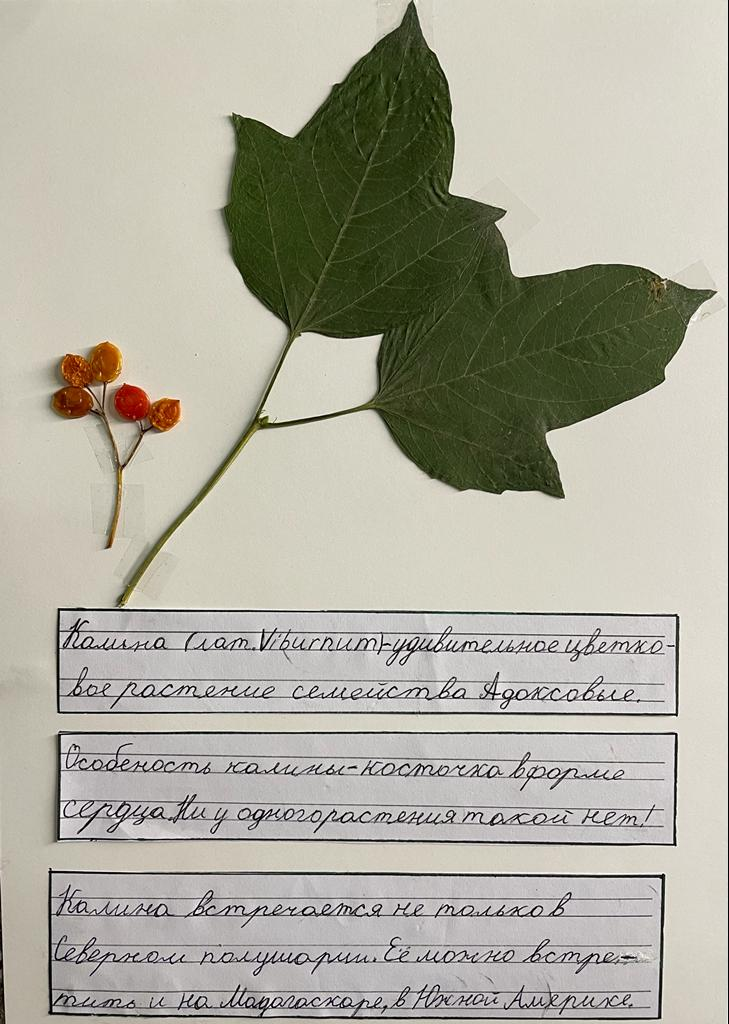 Калина (лат. Viburnum)-удивительное цветко-
вое растение семейства Адоксовые.
Особеность калины-косточка в форме
сердца. Ни у одного растения такой нет!
Калина встречается не только в
Северном полушарии. Её можно встре-
тить и на Мадагаскаре, в Южной Америке.